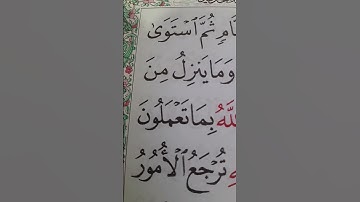 ثُمَّ ٱسْتَوَىٰ
وَمَا يَنزِلُ مِنَ
بِمَا تَعْمَلُونَ
تُرْجَعُ ٱلْأُمُورُ